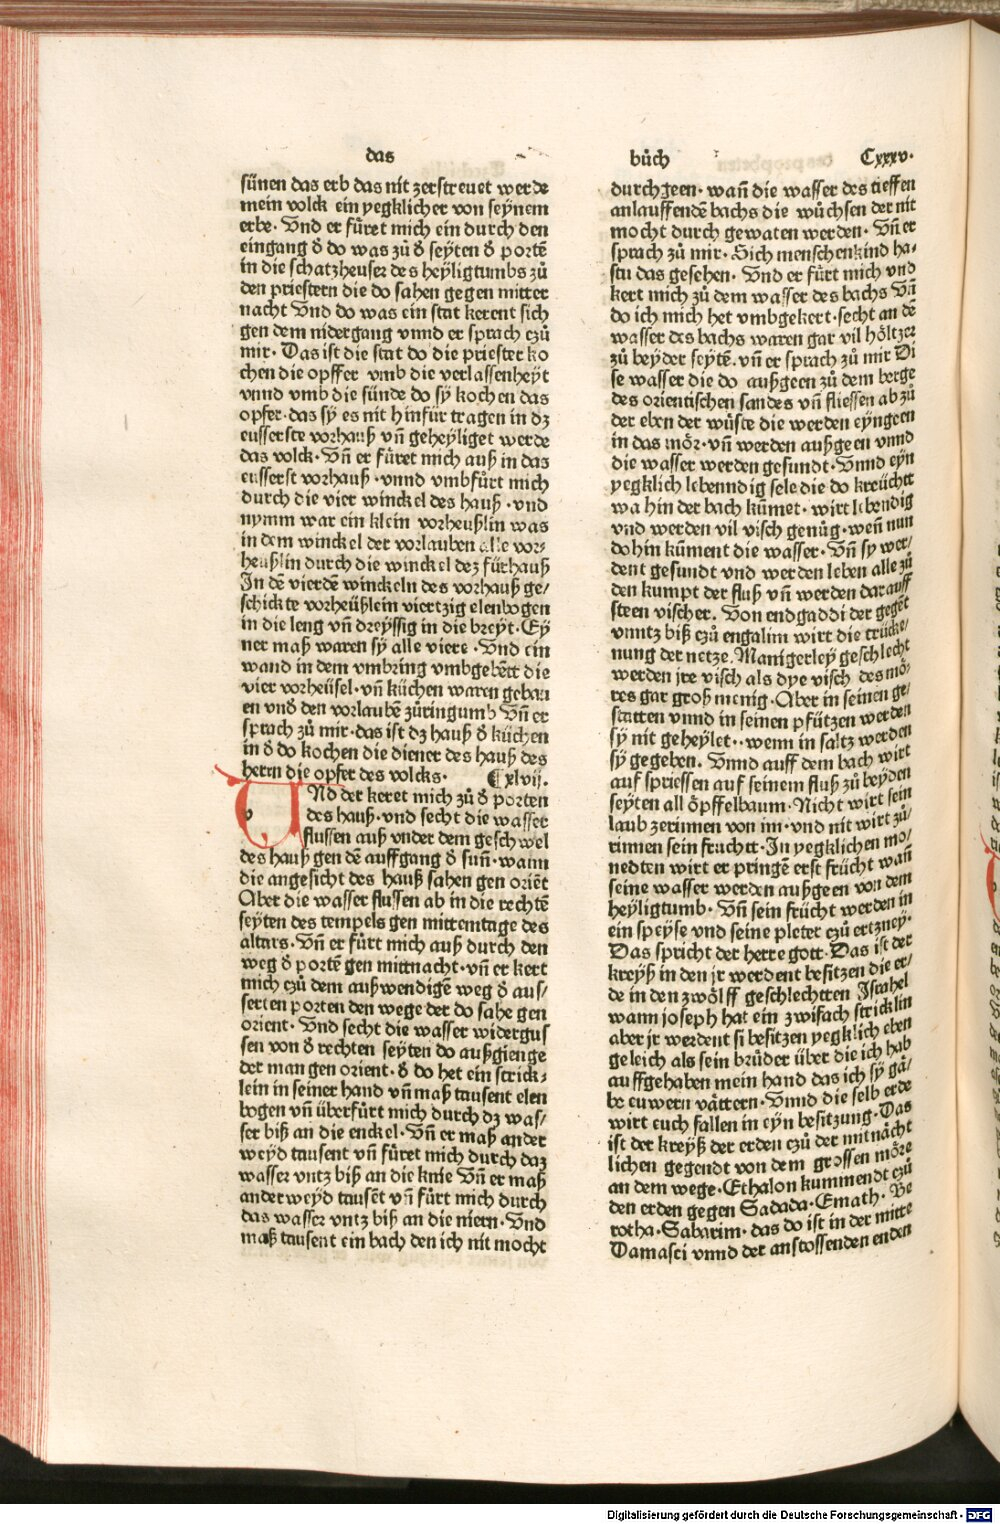 das
bůch
Cxxxv.
sünen das erb das nit zerstreuet werde
mein volck ein yegklicher von seynem
erbe. Vnd er fůret mich ein durch den
eingang ð do was zů ð seyten ð portẽ
in die schatzheuser des heyligtumbs zů
den priestern die do sahen gegen mitter
nacht Vnd do was ein stat kerent sich
gen dem nidergang vnnd er sprach czů
mir. Das ist die stat do die priester ko
chen die opffer vmb die verlassenheyt
vnnd vmb die sünde do sy kochen das
opfer. das sy es nit hinfür tragen in dz
eusserste vorhauß vñ geheyliget werde
das volck. Vñ er fůret mich auß in das
eusserst vorhauß. vnnd vmbfůrt mich
durch die vier winckel des hauß. vnd
nymm war ein klein vorheußlin was
in dem winckel der vorlauben alle vor⸗
heußlin durch die winckel dez fürhauß
In dẽ vierdẽ winckeln des vorhauß ge⸗
schickte vorheüßlein viertzig elenbogen
in die leng vñ dreyssig in die breyt. Ey
ner maß waren sy alle viere. Vnd ein
wand in dem vmbring vmbgebẽtt die
vier vorheüsel. vñ küchen waren gebau
en vnð den vorlaubẽ zůringumb Vñ er
sprach zů mir. das ist dz hauß ð küchen
in ð do kochen die diener des hauß des
herrn die opfer des volcks. Cxlvij.
VNd der keret mich zů ð porten
des hauß. vnd secht die wasser
flussen auß vnder dem geschwel
des hauß gen dẽ auffgang ð suñ. wann
die angesicht des hauß sahen gen oriẽt
Aber die wasser flussen ab in die rechtẽ
seyten des tempels gen mittemtage des
altars. Vñ er fůrt mich auß durch den
weg ð portẽ gen mittnacht. vñ er kert
mich czů dem außwendigẽ weg ð aus⸗
serten porten den wege der do sahe gen
orient. Vnd secht die wasser widergus
sen von ð rechten seyten do außgienge
der man gen orient. ð do het ein strick⸗
lein in seiner hand vñ maß tausent elen
bogen vñ überfůrt mich durch dz was⸗
ser biß an die enckel. Vñ er maß ander
weyd tausent vñ fůret mich durch daz
wasser vntz biß an die knie Vñ er maß
anderweyd tausẽt vñ fůrt mich durch
das wasser vntz biß an die niern. Vnd
maß tausent ein bach den ich nit mocht
durchgeen. wañ die wasser des tieffen
anlauffendẽ bachs die wůchsen der nit
mocht durch gewaten werden. Vñ er
sprach zů mir. Sich menschenkind ha⸗
stu das gesehen. Vnd er fůrt mich vnd
kert mich zů dem wasser des bachs Vñ
do ich mich het vmbgekert. secht an dẽ
wasser des bachs waren gar vil höltzer
zů beyder seytẽ. vñ er sprach zů mir Di
se wasser die do außgeen zů dem berge
des orientischen sandes vñ fliessen ab zů
der eben der wüste die werden eyngeen
in das mör. vñ werden außgeen vnnd
die wasser werden gesundt. Vnnd eyn
yegklich lebenndig sele die do kreüchtt
wa hin der bach kümet. wirt lebendig
vnd werden vil visch genůg. weñ nun
dohin küment die wasser. Vñ sy wer⸗
dent gesundt vnd werden leben alle zů
den kumpt der fluß vñ werden darauff
steen vischer. Von endgaddi der gegẽt
vnntz biß czů engalim wirt die trücke⸗
nung der netze. Manigerley geschlecht
werden jre visch als dye visch des mö⸗
res gar groß menig. Aber in seinen ge⸗
statten vnnd in seinen pfützen werden
sy nit geheylet.. wenn in saltz werden
sy gegeben. Vnnd auff dem bach wirt
auf spriessen auf seinem fluß zů beyden
seyten all öpffelbaum. Nicht wirt sein
laub zerinnen von im. vnd nit wirt zů⸗
rinnen sein fruchtt. In yegklichen mo⸗
nedten wirt er pringẽ erst frücht wañ
seine wasser werden außgeen von dem
heyligtumb. Vñ sein frücht werden in
ein speyse vnd seine pleter czů ertzney.
Das spricht der herre gott. Das ist der
kreyß in den jr werdent besitzen die er⸗
de in den zwölff geschlechtten Israhel
wann joseph hat ein zwifach stricklin
aber jr werdent si besitzen yegklich eben
geleich als sein brůder über die ich hab
auffgehaben mein hand das ich sy gä⸗
be euwern vättern. Vnnd die selb erde
wirt euch fallen in eyn besitzung. Das
ist der kreyß der erden czů der mitnächt
lichen gegendt von dem grossen möre
an dem wege. Ethalon kummendt czů
den erden gegen Sadada. Emath. Be
rotha. Sabarim. das do ist in der mitte
Damasci vnnd der anstossenden enden
Digitalisierung gefördert durch die Deutsche Forschungsgemeinschaft - DFG